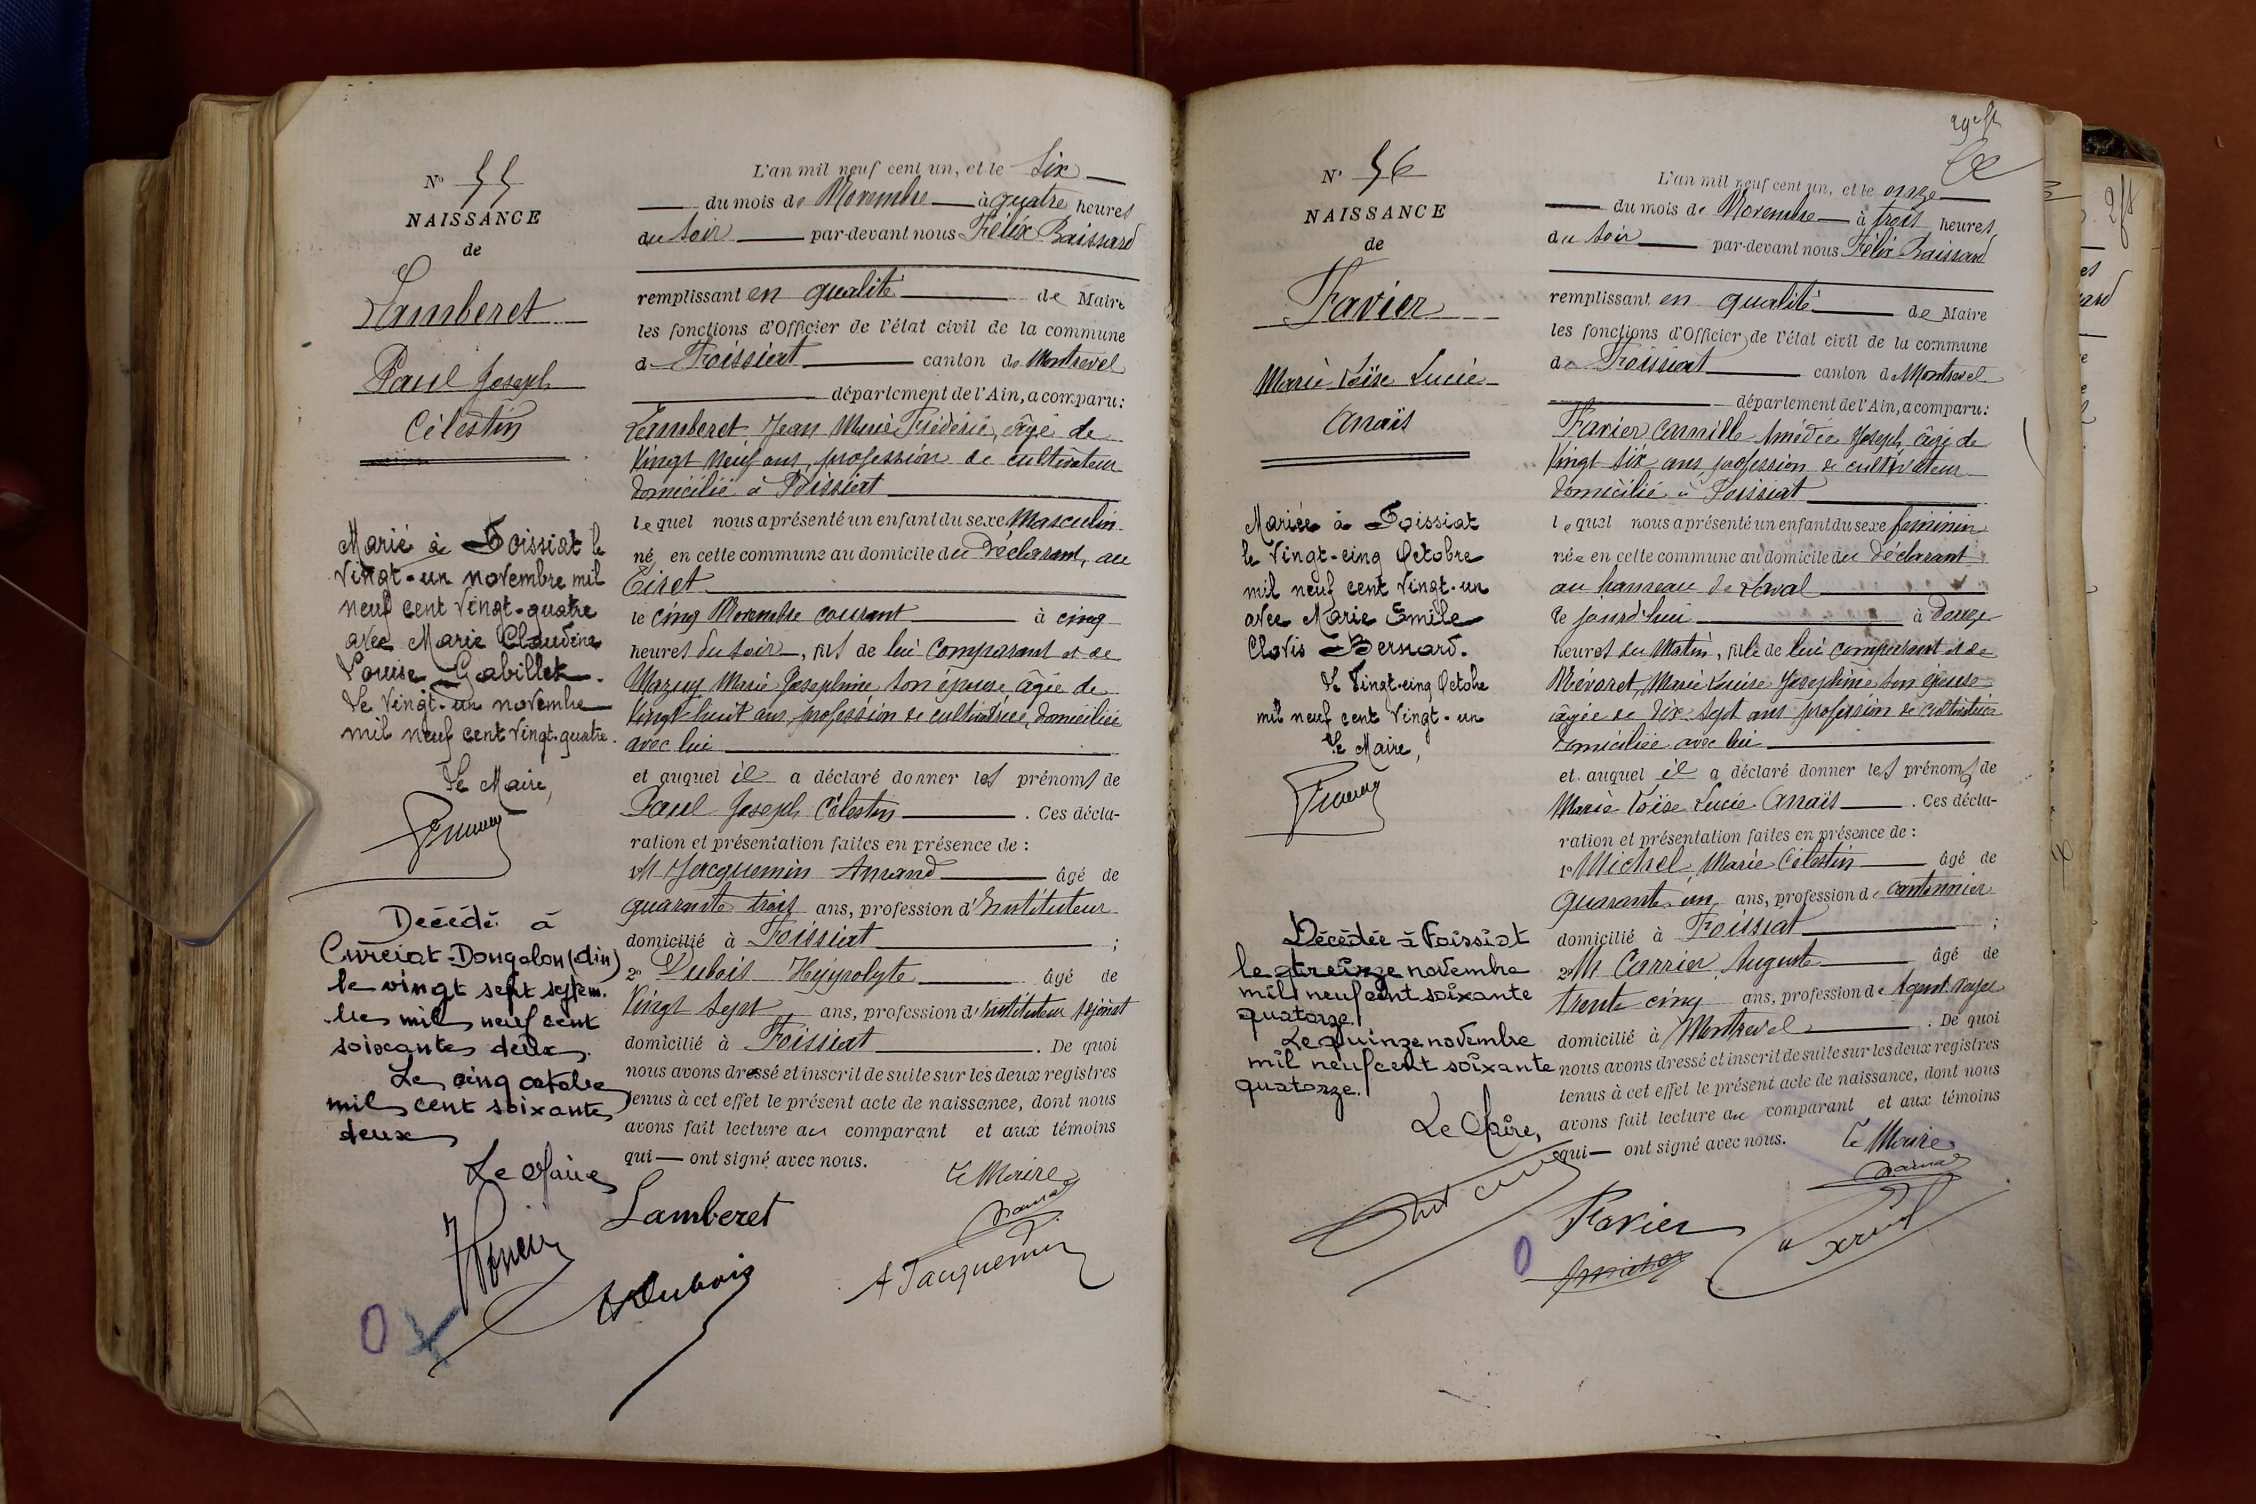 N° 55
NAISSANCE
de
Lamberet
Paul Joseph
Célestin
Marié à Foissiat le
vingt-un novembre mil
neuf cent vingt-quatre
avec Marie Claudine
Louise Gabillet.
Le vingt-un novembre
mil neuf cent vingt-quatre.
Le Maire,
Décédé à
Curciat-Dongalon (Ain)
le vingt sept septem.
bre mil neuf cent
soixante deux.
Le cinq octobre
mil cent soixante
deux
Le Maire
L'an mil neuf cent un, et le Six
du mois de Novembre à quatre heures
du soir par-devant nous Félix Baissard
remplissant en qualité de Maire
les fonctions d'Officier de l'état civil de la commune
de Foissiat canton de Montrevel
département de l'Ain, a comparu:
Lamberet Jean Marie Frédéric, âgé de
Vingt Neuf ans, profession de cultivateur
domicilié à Foissiat
lequel nous a présenté un enfant du sexe Masculin
né en cette commune au domicile du Déclarant, au
Tiret
le cinq Novembre courant à cinq
heures du soir, fils de lui Comparant et de
Mazuy Marie Joséphine son épouse, âgée de
Vingt-huit ans, profession de cultivatrice, domiciliée
avec lui
et auquel il a déclaré donner les prénoms de
Paul Joseph Célestin. Ces décla-
ration et présentation faites en présence de:
1° M Jacquemin Amand âgé de
quarante trois ans, profession d'Instituteur
domicilié à Foissiat;
2° Dubois Hyppolyte âgé de
Vingt Sept ans, profession d'Instituteur Adjoint
domicilié à Foissiat. De quoi
nous avons dressé et inscrit de suite sur les deux registres
tenus à cet effet le présent acte de naissance, dont nous
avons fait lecture au comparant et aux témoins
qui ont signé avec nous. Le Maire
Lamberet
Dubois
A Jacquemin
N° 56
NAISSANCE
de
Favier
Marie Loïse Lucie
Anaïs
Mariée à Foissiat
le Vingt-cinq Octobre
mil neuf cent vingt-un
avec Marie Emile
Clovis Bernard.
Le Vingt-cinq Octobre
mil neuf cent Vingt-un
Le Maire,
Décédée à Foissiat
le treize novembre
mil neuf cent soixante
quatorze.
Le quinze novembre
mil neuf cent soixante
quatorze.
Le Maire,
L'an mil neuf cent un, et le onze
du mois de Novembre à trois heures
du soir par-devant nous Félix Baissard
remplissant en qualité de Maire
les fonctions d'Officier de l'état civil de la commune
de Foissiat canton de Montrevel
département de l'Ain, a comparu:
Favier Camille Amédée Joseph, âgé de
Vingt Six ans, profession de cultivateur
domicilié à Foissiat
lequel nous a présenté un enfant du sexe féminin
née en cette commune au domicile du Déclarant
au hameau de Laval
Ce jourd'hui à Douze
heures du Matin, fille de lui comparant et de
Mévoret, Marie Louise Joséphine son épouse
âgée de Dix-Sept ans profession de cultivatrice
domiciliée avec lui
et auquel il a déclaré donner les prénoms de
Marie Loïse Lucie Anaïs. Ces décla-
ration et présentation faites en présence de:
1° Michel, Marie Célestin âgé de
Quarante un ans, profession de cantonnier
domicilié à Foissiat;
2° M Carrier Auguste âgé de
trente cinq ans, profession de Agent Voyer
domicilié à Montrevel. De quoi
nous avons dressé et inscrit de suite sur les deux registres
tenus à cet effet le présent acte de naissance, dont nous
avons fait lecture au comparant et aux témoins
qui ont signé avec nous. Le Maire
Favier